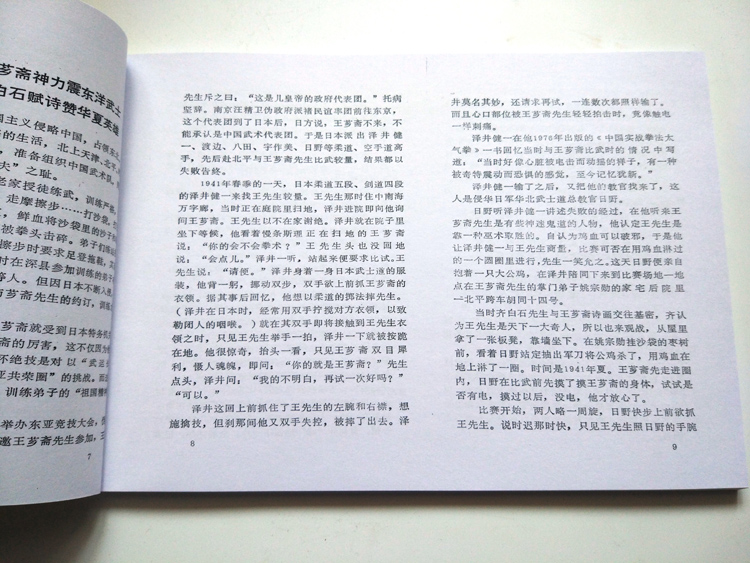 芗斋神力震东洋武士
白石赋诗赞华夏英雄
国主义侵略中国，占领东
的生活，北上天津、北平，
，准备组织中国武术队，
夫”之耻。
老家授徒练武，训练严格，
，走摩擦步……打沙袋，
，鲜血将沙袋里的沙子
被拳头击碎。弟子们练
擦步时要求足登拖鞋，
时在深县参加训练的弟子
等人。但因日本不断入侵
与芗斋先生的约订，训练
芗斋就受到日本特务机
的厉害，这不仅因为
不绝技是对以“武运
亚共荣圈”的挑战。而
训练弟子的“祖国精神
举办东亚竞技大会，
邀王芗斋先生参加，王
7
先生斥之曰：“这是儿皇帝的政府代表团。”托病
坚辞。南京汪精卫伪政府派褚民谊率团前往东京，
这个代表团到了日本后，日方说，王芗斋不来，不
能承认是中国武术代表团。于是日本派出泽井健
一、渡边、八田、宇作美、日野等柔道、空手道高
手，先后赴北平与王芗斋先生比武较量，结果都以
失败告终。
1941年春季的一天，日本柔道五段、剑道四段
的泽井健一来找王先生较量。王先生那时住中南海
万字廊，当时正在庭院里扫地，泽井进院即向他询
问王芗斋。王先生以不在家谢绝。泽井就在院子里
坐下等候，他看着慢条斯理正在扫地的王芗斋
说：“你的会不会拳术？”王先生头也没回地
说：“会点儿。”泽井一听，站起来便要求比试。王
先生说：“请便。”泽井着一身日本武士道的服
装，他背一躬，挪动双步，双手欲上前抓王芗斋的
衣领。据其事后回忆，他想以柔道的掷法摔先生。
（泽井在日本时，经常用双手拧搅对方衣领，以致
勒闭人的咽喉。）就在其双手即将接触到王先生衣
领之时，只见王先生举手一拍，泽井一下就被按跪
在地。他很惊奇，抬头一看，只见芗斋双目犀
利，慑人魂魄，即问：“你的就是王芗斋？”先生
点头，泽井问：“我的不明白，再试一次好吗？”
“可以。”
泽井这回上前抓住了王先生的左腕和右襟，想
施擒技，但刹那间他又双手失控，被摔了出去。泽
8
井莫名其妙，还请求再试，一连数次都照样输了。
而且心口部位被王芗斋先生轻轻拍击时，竟像触电
一样刺痛。
泽井健一在他1976年出版的《中国实战拳法太
气拳》一书回忆当时与王芗斋比武时的情况中写
道：“当时好像心脏被电击而动摇的样子，有一种
被奇特震动而恐惧的感觉，至今记忆犹新。”
泽井健一输了之后，又把他的教官找来了，这
人是侵华日军华北武士道总教官日野。
日野听泽井健一讲述失败的经过，在他听来王
芗斋先生是有些神迷鬼道的人物，他认定王先生是
靠一种巫术取胜的。自认为鸡血可以破邪，于是他
让泽井健一与王先生商量，比赛可否在用鸡血淋过
的一个圆圈里进行，先生一笑允之。这天日野便亲自
抱着一只大公鸡，在泽井陪同下来到比赛场地一地
点在王芗斋先生的掌门弟子姚宗勋的家宅后院里
一北平跨车胡同十四号。
当时齐白石先生与王芗斋诗画交往甚密，齐认
为王先生是天下一大奇人，所以也来观战，从屋里
拿了一张板凳，靠墙坐下。在姚宗勋挂沙袋的枣树
前，看着日野站定抽出军刀将公鸡杀了，用鸡血在
地上淋了一圈。时间是1941年夏。王芗斋先走进圈
内，日野在比武前先摸了摸王芗斋的身体，试试是
否有电，摸过以后，没电，他才放心了。
比赛开始，两人略一周旋，日野快步上前欲抓
王先生。说时迟那时快，只见王先生照日野的手腕
9